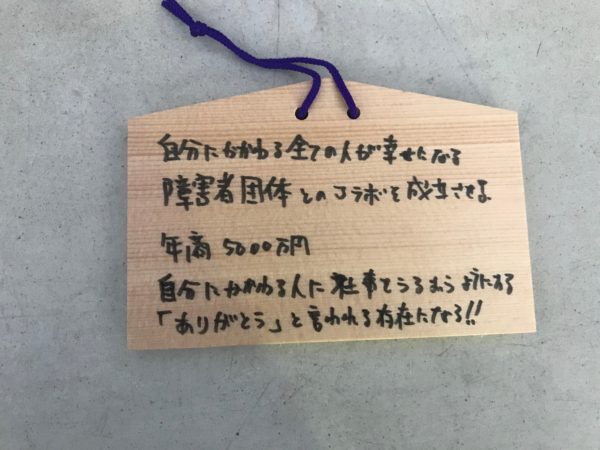 自分にかかわる全ての人が幸せになる
障害者団体とのコラボを成立させる
年商5000万円
自分にかかわる人に仕事でうるおうようにする
「ありがとう」と言われる存在になる!!